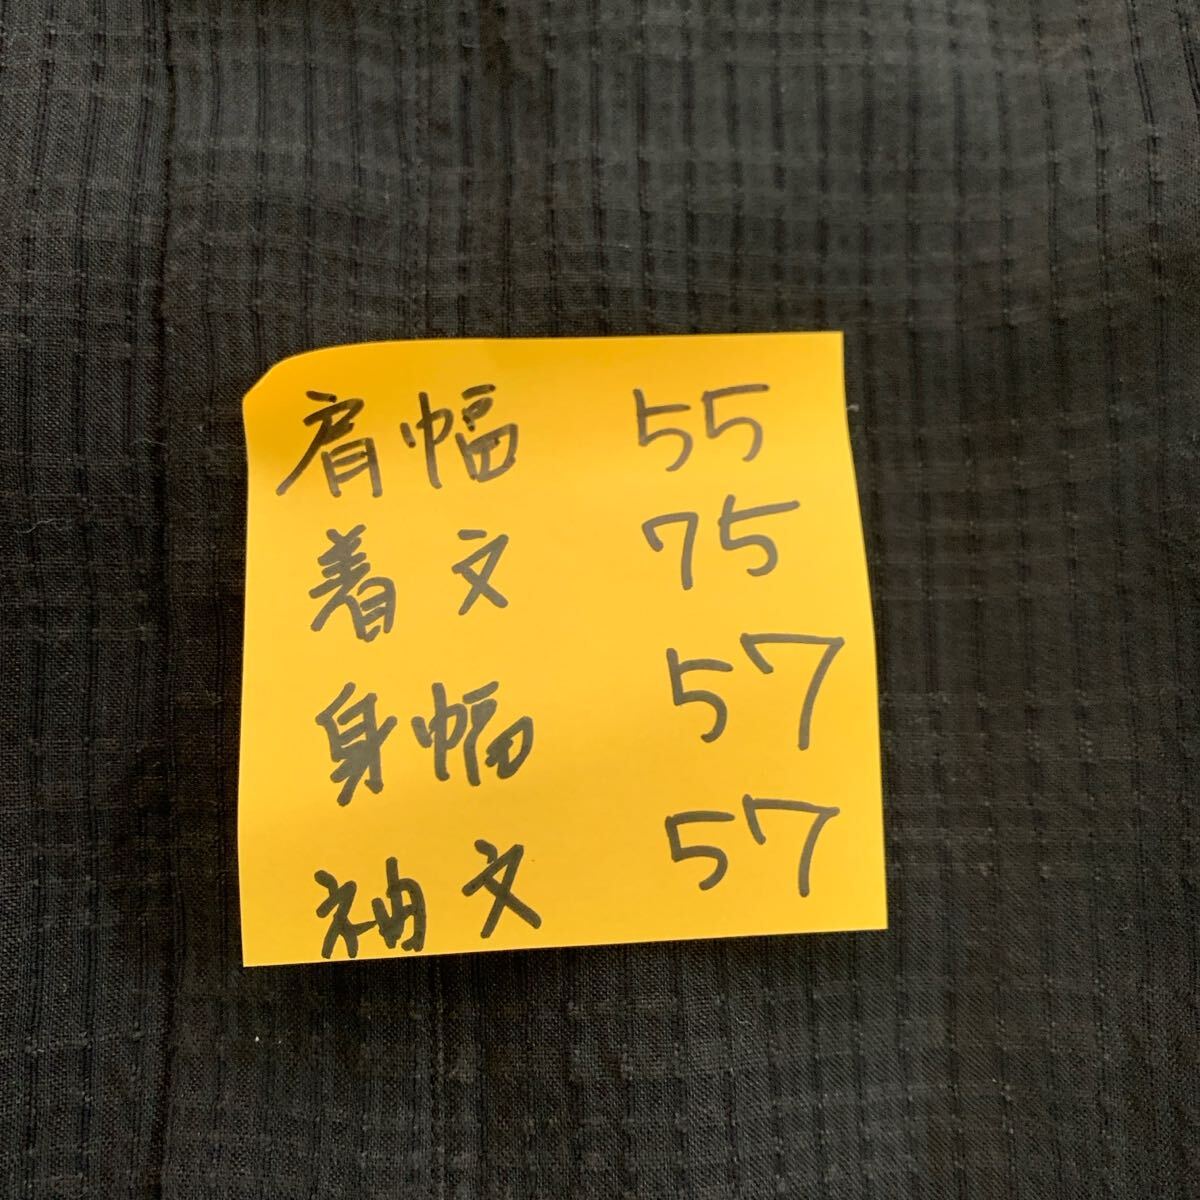 肩幅 55
着文 75
身幅 57
袖文 57